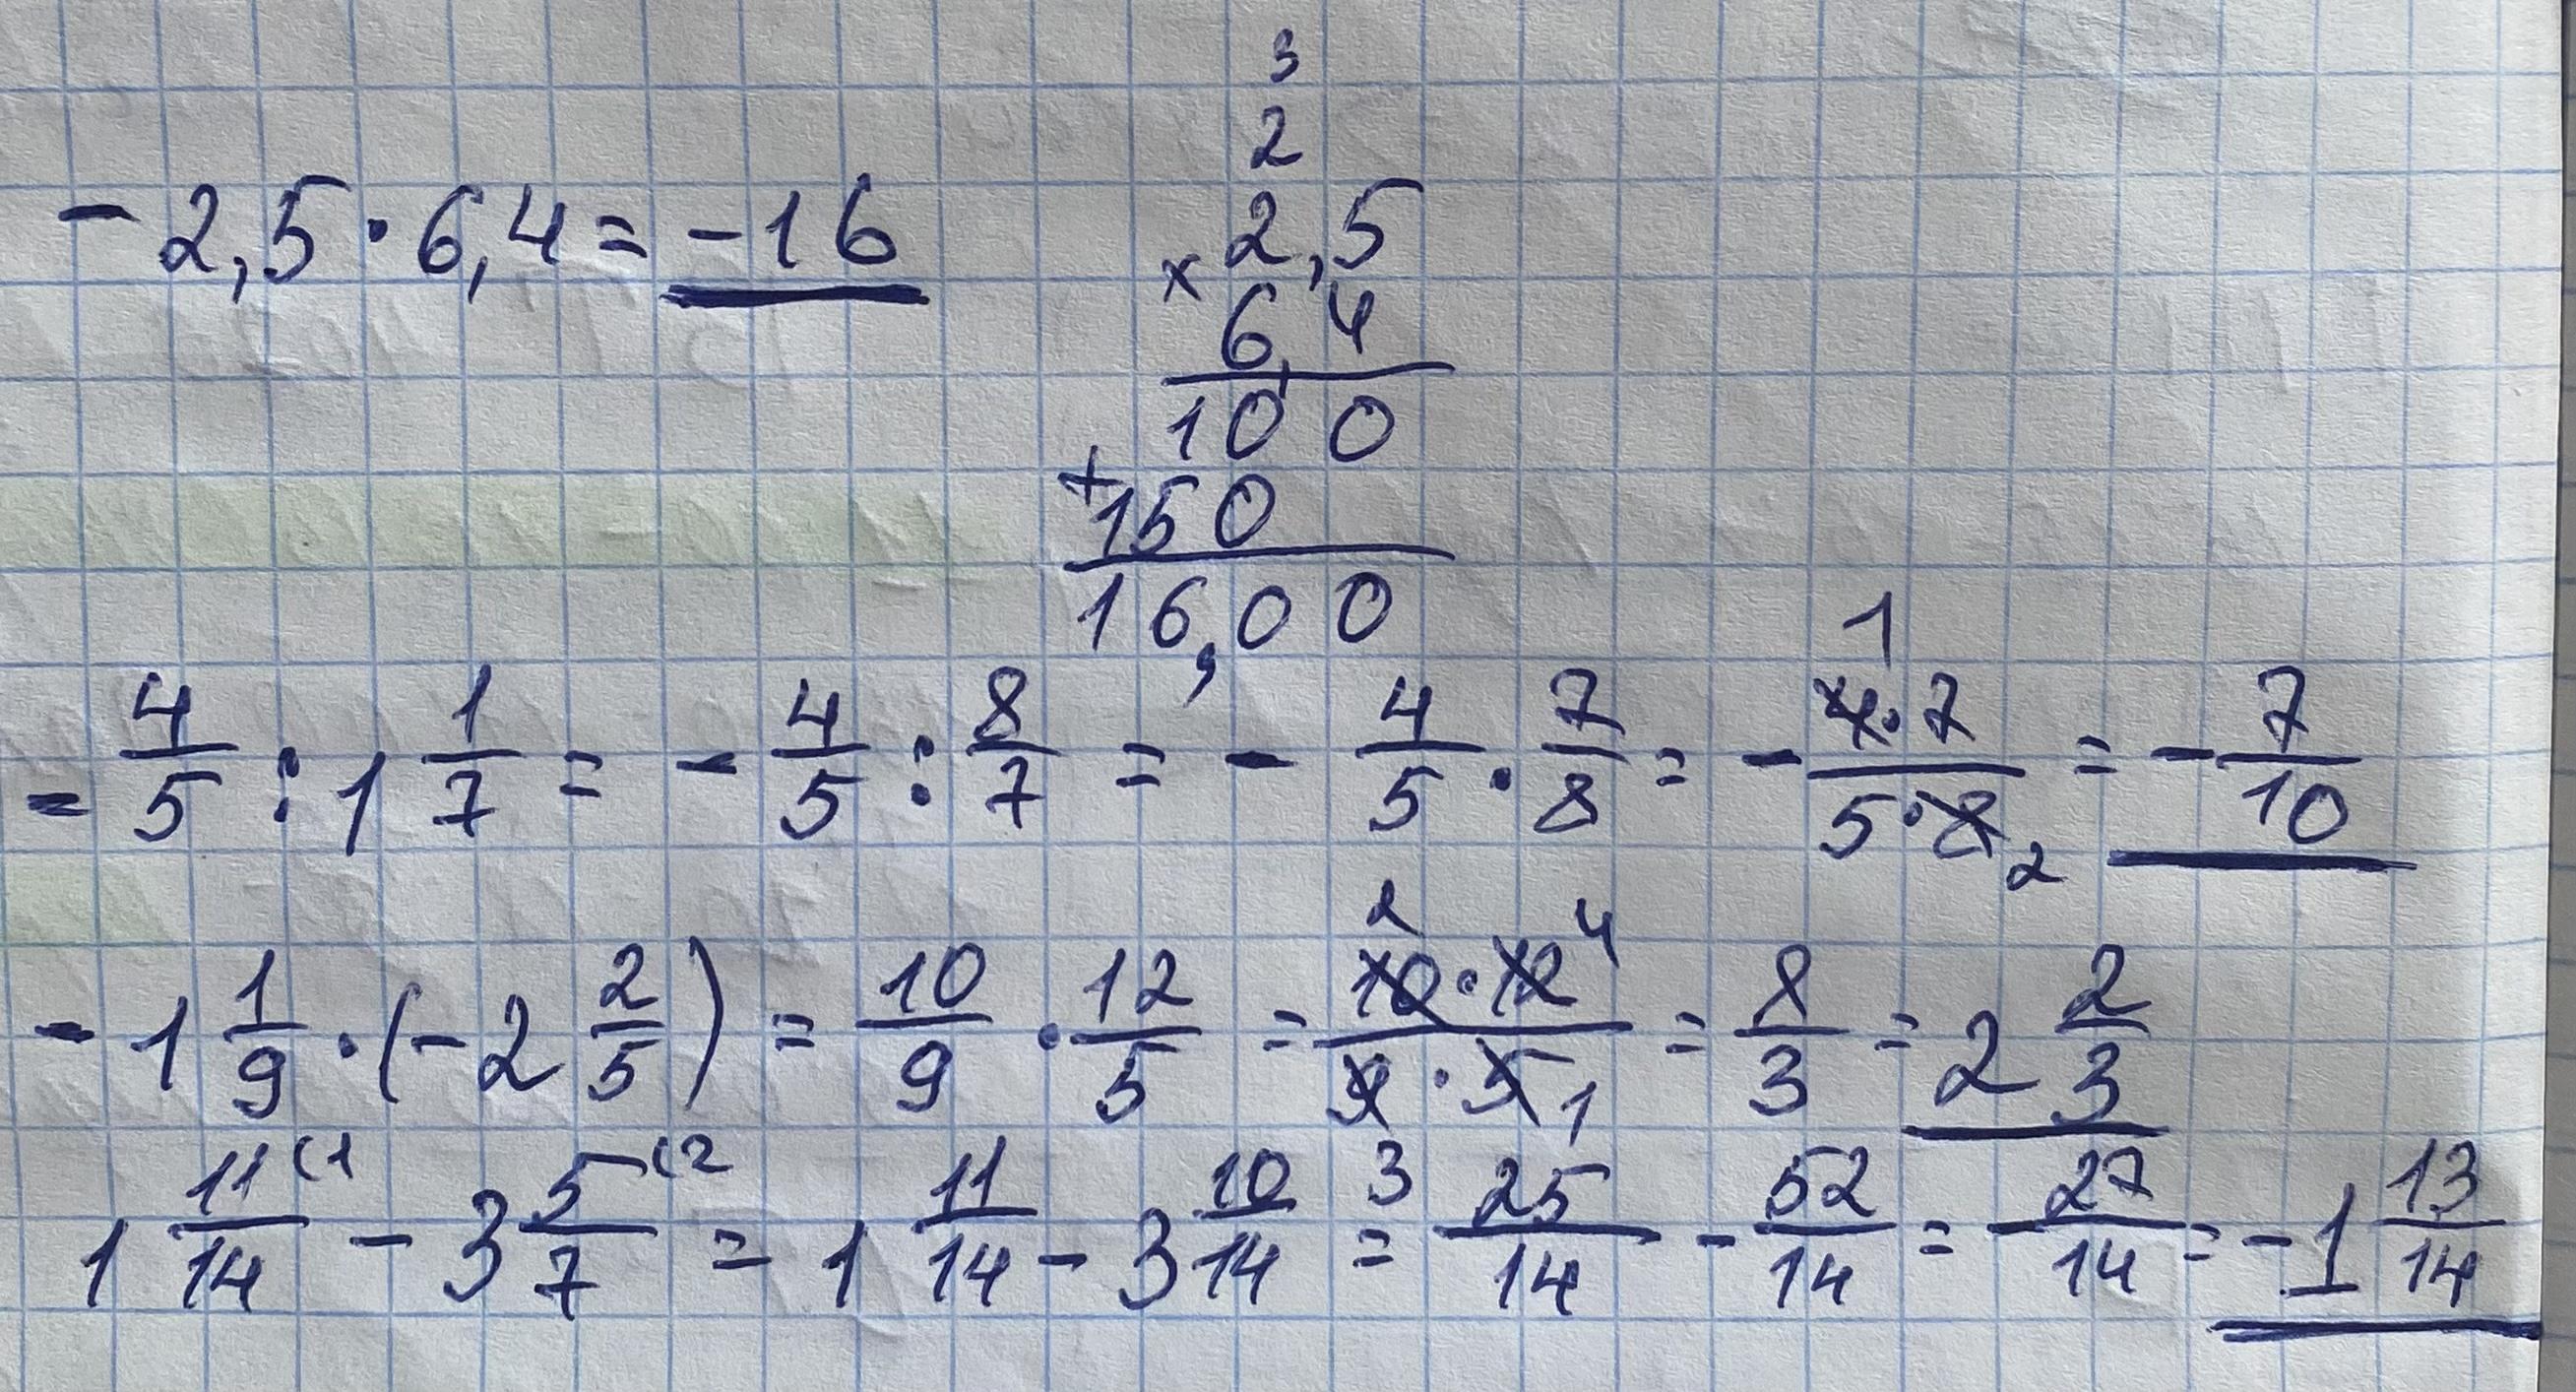 3
2
-2,5·6,4=-16
2,5
×
6,4
100
+
150
16,00
1
-4/5:1 1/7=-4/5:8/7=-4/5·7/8=-4·7/5·8=-7/10
2
2 4
-1 1/9·(-2 2/5)=10/9·12/5=10·12/9·5=8/3=2 2/3
3 1
1 11/14(1-3 5/7(2=1 11/14-3 10/14=25/14-52/14=-27/14=-1 13/14